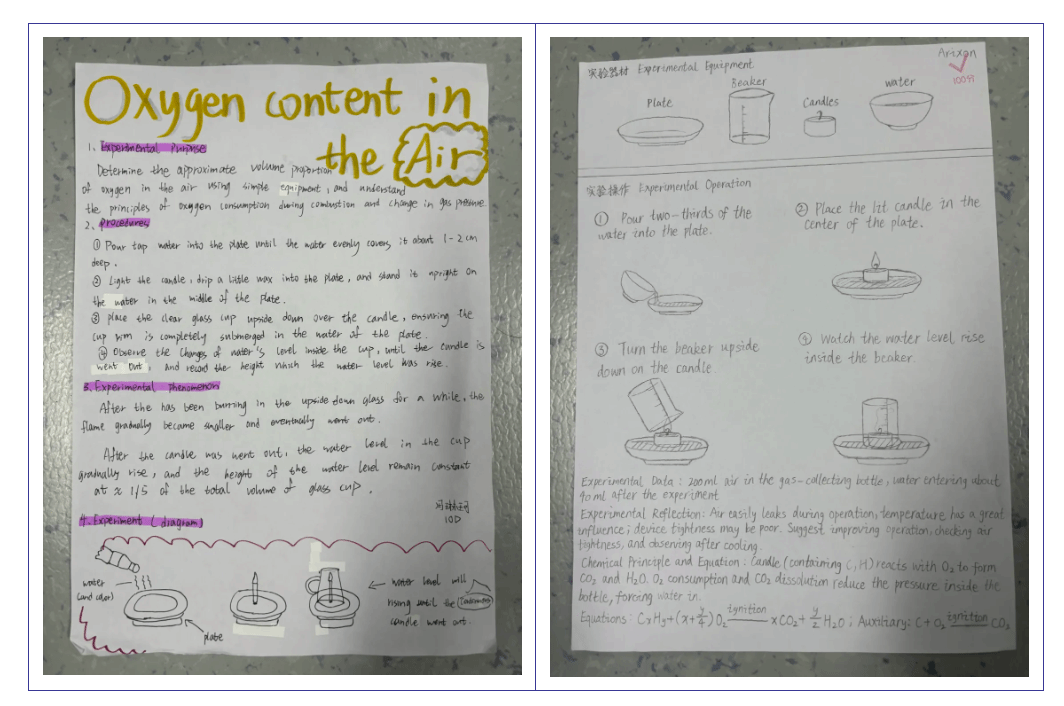 Oxygen content in
the Air
1. Experimental Purpose
Determine the approximate volume proportion
of oxygen in the air using simple equipment, and understand
the principles of oxygen consumption during combustion and change in gas pressure.
2. Procedures
① Pour tap water into the plate until the water evenly covers it about 1-2cm
deep.
② Light the candle, drip a little wax into the plate, and stand it upright on
the water in the middle of the plate.
③ place the clear glass cup upside down over the candle, ensuring the
cup rim is completely submerged in the water of the plate.
④ Observe the changes of water's level inside the cup, until the candle is
went out, and record the height which the water level was rise.
3. Experimental phenomenon
After the has been burning in the upside down glass for a while, the
flame gradually became smaller and eventually went out.
After the candle was went out, the water level in the cup
gradually rise, and the height of the water level remain constant
at ≈ 1/5 of the total volume of glass cup.
10D
4. Experiment (diagram)
water
(and color)
plate
← water level will
rising until the
candle went out.
Arixon
100分
实验器材 Experimental Equipment
Plate
Beaker
Candles
water
实验操作 Experimental Operation
① Pour two-thirds of the
water into the plate.
② Place the lit candle in the
center of the plate.
③ Turn the beaker upside
down on the candle.
④ Watch the water level rise
inside the beaker.
Experimental Data: 200ml air in the gas-collecting bottle, water entering about
40ml after the experiment
Experimental Reflection: Air easily leaks during operation, temperature has a great
influence; device tightness may be poor. Suggest improving operation, checking air
tightness, and observing after cooling.
Chemical Principle and Equation: Candle (containing C, H) reacts with O₂ to form
CO₂ and H₂O. O₂ consumption and CO₂ dissolution reduce the pressure inside the
bottle, forcing water in.
Equations: CxHy+(x+y/4)O₂ ignition xCO₂+y/2 H₂O; Auxiliary: C+O₂ ignition CO₂